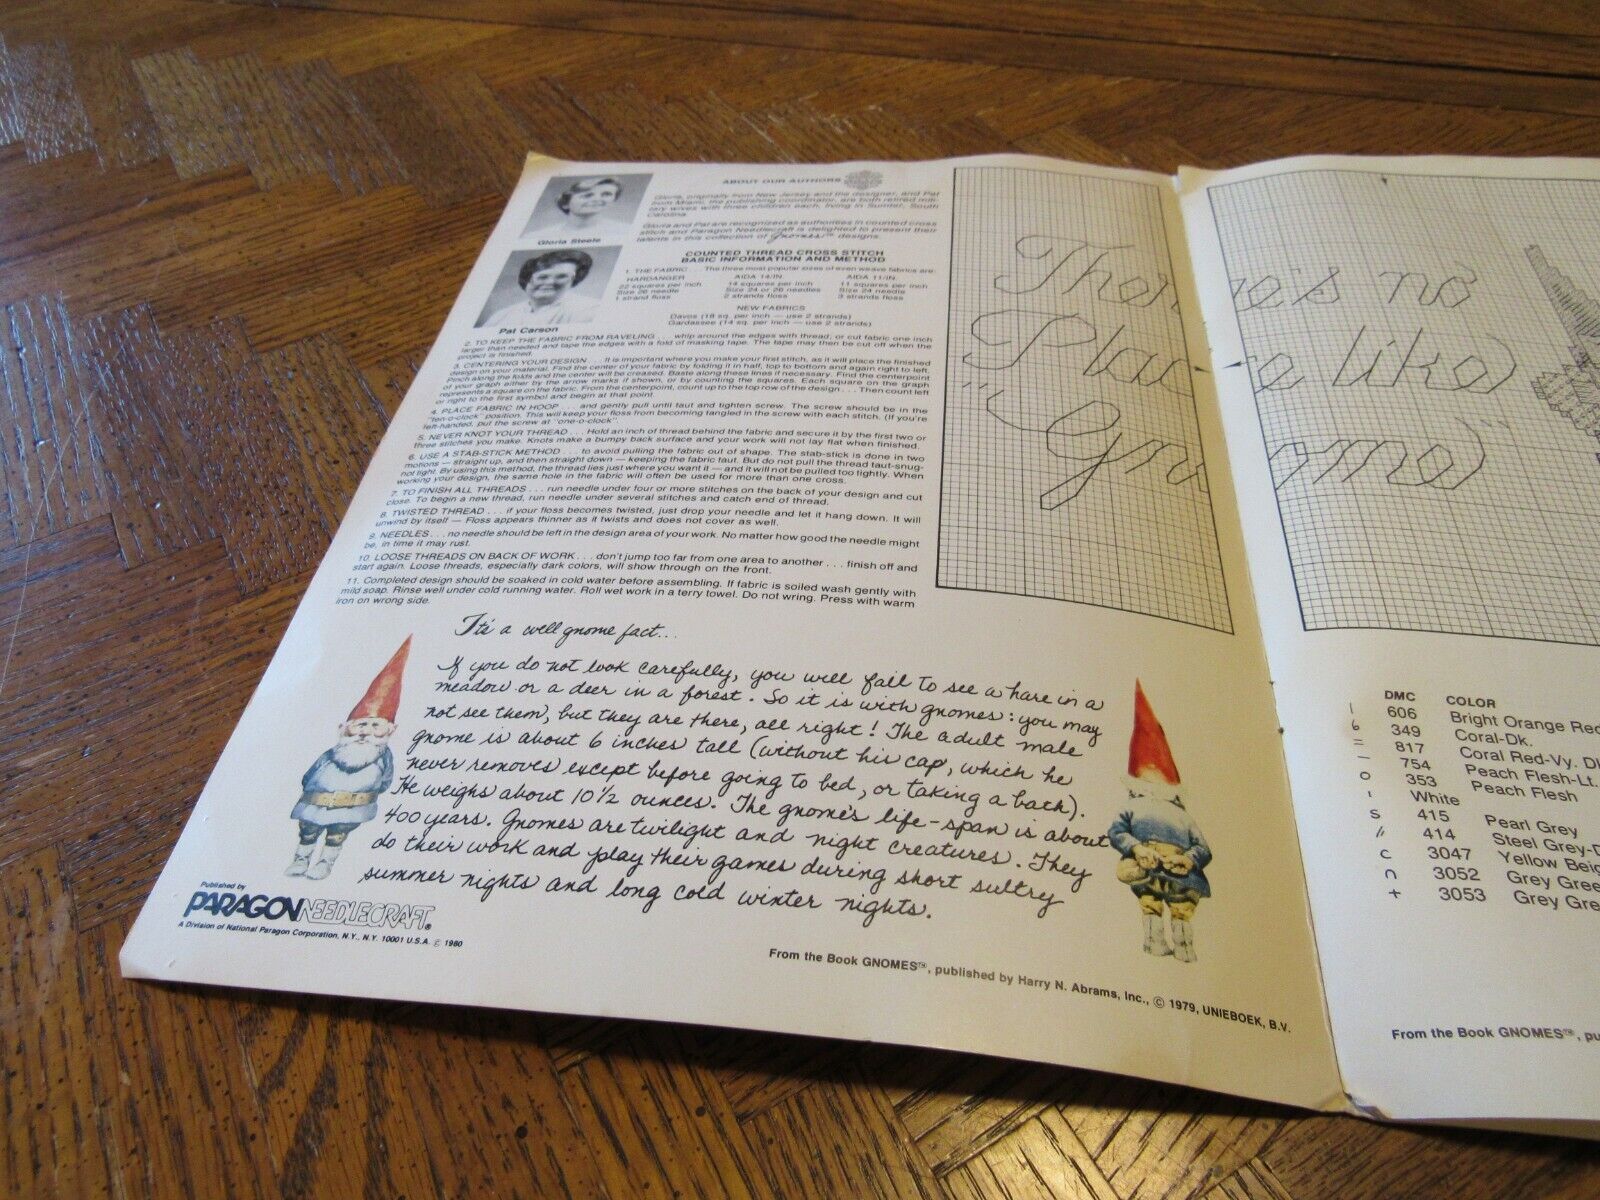 ABOUT OUR AUTHORS
Gloria, originally from New Jersey and the designer, and Pat
from Miami, the publishing coordinator, are both retired mili-
tary wives with three children each, living in Sumter, South
Carolina.
Gloria and Pat are recognized as authorities in counted cross
stitch and Paragon Needlecraft is delighted to present their
talents in this collection of Gnomes™ designs.
Gloria Steele
Pat Carson
COUNTED THREAD CROSS STITCH
BASIC INFORMATION AND METHOD
1. THE FABRIC . . . The three most popular sizes of even weave fabrics are:
HARDANGER AIDA 14/IN. AIDA 11/IN.
22 squares per inch 14 squares per inch 11 squares per inch
Size 26 needle Size 24 or 26 needles Size 24 needle
1 strand floss 2 strands floss 3 strands floss
NEW FABRICS
Davos (18 sq. per inch — use 2 strands)
Gardassee (14 sq. per inch — use 2 strands)
2. TO KEEP THE FABRIC FROM RAVELING . . . whip around the edges with thread, or cut fabric one inch
larger than needed and tape the edges with a fold of masking tape. The tape may then be cut off when the
project is finished.
3. CENTERING YOUR DESIGN . . . It is important where you make your first stitch, as it will place the finished
design on your material. Find the center of your fabric by folding it in half, top to bottom and again right to left.
Pinch along the folds and the center will be creased. Baste along these lines if necessary. Find the centerpoint
of your graph either by the arrow marks if shown, or by counting the squares. Each square on the graph
represents a square on the fabric. From the centerpoint, count up to the top row of the design . . . Then count left
or right to the first symbol and begin at that point.
4. PLACE FABRIC IN HOOP . . . and gently pull until taut and tighten screw. The screw should be in the
"ten-o-clock" position. This will keep your floss from becoming tangled in the screw with each stitch. (If you're
left-handed, put the screw at "one-o-clock".
5. NEVER KNOT YOUR THREAD . . . Hold an inch of thread behind the fabric and secure it by the first two or
three stitches you make. Knots make a bumpy back surface and your work will not lay flat when finished.
6. USE A STAB-STICK METHOD . . . to avoid pulling the fabric out of shape. The stab-stick is done in two
motions — straight up, and then straight down — keeping the fabric taut. But do not pull the thread taut-snug-
not tight. By using this method, the thread lies just where you want it — and it will not be pulled too tightly. When
working your design, the same hole in the fabric will often be used for more than one cross.
7. TO FINISH ALL THREADS . . . run needle under four or more stitches on the back of your design and cut
close. To begin a new thread, run needle under several stitches and catch end of thread.
8. TWISTED THREAD . . . if your floss becomes twisted, just drop your needle and let it hang down. It will
unwind by itself — Floss appears thinner as it twists and does not cover as well.
9. NEEDLES . . . no needle should be left in the design area of your work. No matter how good the needle might
be, in time it may rust.
10. LOOSE THREADS ON BACK OF WORK . . . don't jump too far from one area to another . . . finish off and
start again. Loose threads, especially dark colors, will show through on the front.
11. Completed design should be soaked in cold water before assembling. If fabric is soiled wash gently with
mild soap. Rinse well under cold running water. Roll wet work in a terry towel. Do not wring. Press with warm
iron on wrong side.
It's a well gnome fact...
If you do not look carefully, you will fail to see a hare in a
meadow or a deer in a forest. So it is with gnomes: you may
not see them, but they are there, all right! The adult male
gnome is about 6 inches tall (without his cap, which he
never removes except before going to bed, or taking a bath).
He weighs about 10½ ounces. The gnome's life-span is about
400 years. Gnomes are twilight and night creatures. They
do their work and play their games during short sultry
summer nights and long cold winter nights.
Published by
PARAGON NEEDLECRAFT®
A Division of National Paragon Corporation, N.Y., N.Y. 10001 U.S.A. © 1980
From the Book GNOMES™, published by Harry N. Abrams, Inc., © 1979, UNIEBOEK, B.V.
There's no
Place like
Gnome
DMC COLOR
606 Bright Orange Red
349 Coral-Dk.
817 Coral Red-Vy.
754 Peach Flesh-Lt.
353 Peach Flesh
White
S 415 Pearl Grey
414 Steel Grey-D
C 3047 Yellow Beig
∩ 3052 Grey Gree
+ 3053 Grey Gre
From the Book GNOMES™, pu